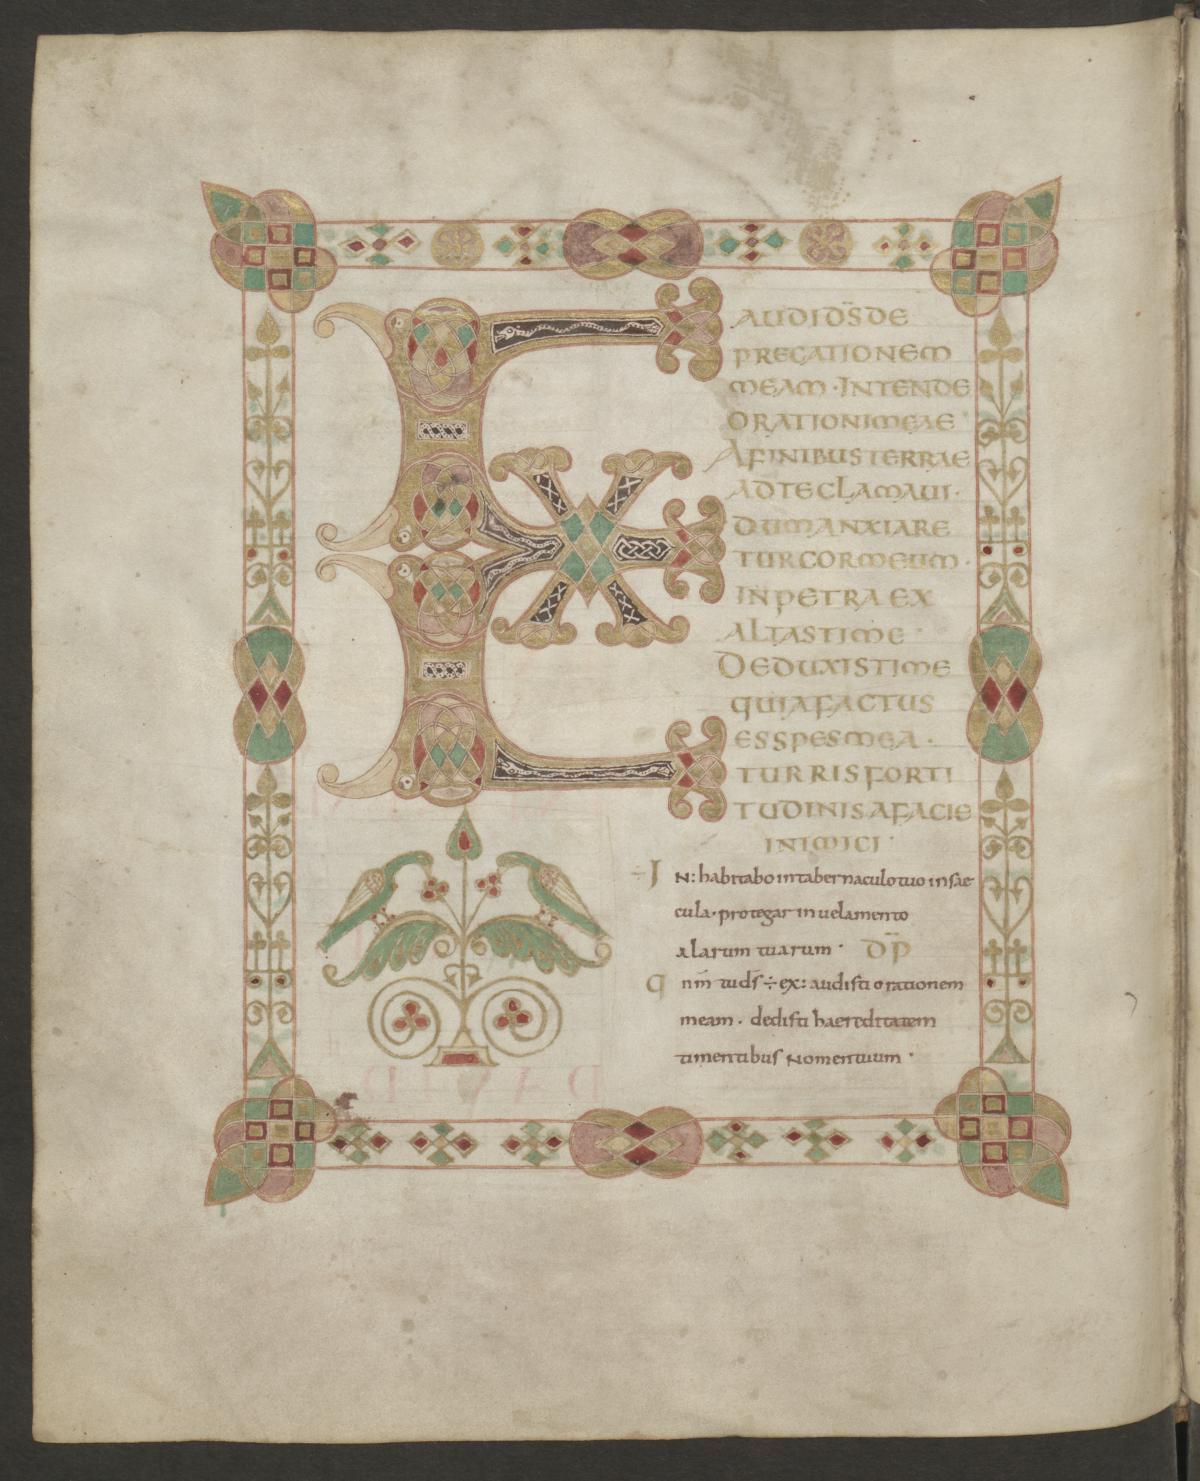 EX
AUDI D̅S̅ DE
PRECATIONEM
MEAM · INTENDE
ORATIONI MEAE
A FINIBUS TERRAE
AD TE CLAMAUI ·
DUM ANXIARE
TUR COR MEUM ·
IN PETRA EX
ALTASTI ME ·
DEDUXISTI ME
QUIA FACTUS
ES SPES MEA ·
TURRIS FORTI
TUDINIS A FACIE
INIMICI ·
÷ IN: habitabo in tabernaculo tuo in sae
cula · protegar in uelamento
alarum tuarum · D̅P̅
qn̅m̅ tu d̅s̅ ÷ ex: audisti orationem
meam · dedisti haereditatem
timentibus nomen tuum ·